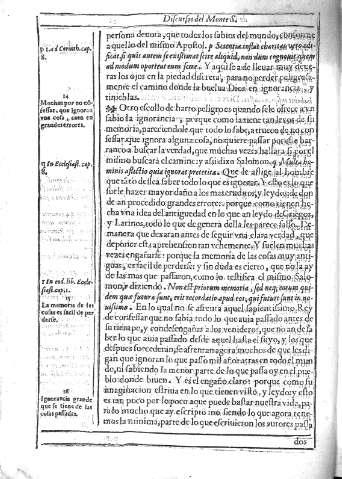 Discursos del Monte S.
persona denota, que todos los sabios del mundo, conforme
a quello del mismo Apostol. p Scientia inflat charitas vero edi-
ficat, si quis autem se existimat scire aliquid, non dum cognouit quem
ad modum oporteat eum scire. Y aqui se a de lleuar muy
ros los ojos en la piedad discreta, para no perder
mente el camino donde la buelua Dios en ignorancia, y
tinieblas.
Otro escollo de harto peligro es quando se le ofrece a vn
sabio la ignorancia, porque como la tiene tan lexos de su
memoria, pareciendole que todo lo sabe, a trueco de no con
fessar que ignora alguna cosa, no quiere passar por
ranco a buscar la verdad, que muchas vezes hallara si por el
mismo buscara el camino: y assi dixo Salomon. q Multa ho-
minis afflictio quia ignorat preterita. Que de aflige al hombre
que
 a los mas terudos, y leydos de don
de an procedido grandes errores: porque como tienen he-
cha vna idea del antiguedad en lo que an leydo de Griegos,
y Latinos, todo lo que de genera della les parece falso. De
manera que dexaran antes de seguir vna clara verdad, que
deponer esta aprehension tan vehemente. Y suelen muchas
vezes engañarse: porque la memoria de las cosas muy anti-
guas, es facil de perderse: y sin duda es cierto, que no la ay
de las mas que passaron, como lo testifica el mismo Salo-
mon, diziendo. Non est priorum memoria, sed nec eorum qui
dem quæ futura sunt, erit recordatio apud eos, qui futuri sunt in no-
uissimo. En lo qual no se atreue a aquel sapientissimo Rey
de confessar que no sabia todo lo que auia passado antes de
su tiempo, y con desengañar a los venideros, que no an de sa
ber lo que auia passado desde aquel hasta el suyo, y los que
despues sucederian, se afrentan agora muchos de que les di-
gan que ignoran lo que passo mil años atras en todo el mun
do, ni sabiendo la menor parte de lo que passa oy en el pue-
blo donde biuen. Y es el engaño claro: porque como su
imaginacion estriua en lo que tienen visto, y leydo: y esto
es tan poco por lo poco que puede bastar nuestra vida, pa-
ra lo mucho que ay escripto: no siendo lo que agora tene-
mos la minima, parte de lo que escriuieron los autores passa
dos
p 1. ad Corinth. cap.
8.
14
Mucho por no co-
fessar, que ignora
vna cosa, caen en
grandes errores.
q In Ecclesiast. cap.
8.
r In eod. lib. Eccle-
siast. cap. 1.
15
La memoria de las
cosas es facil de per
derse.
16
Ignorancia grande
que se tiene de las
cosas passadas.